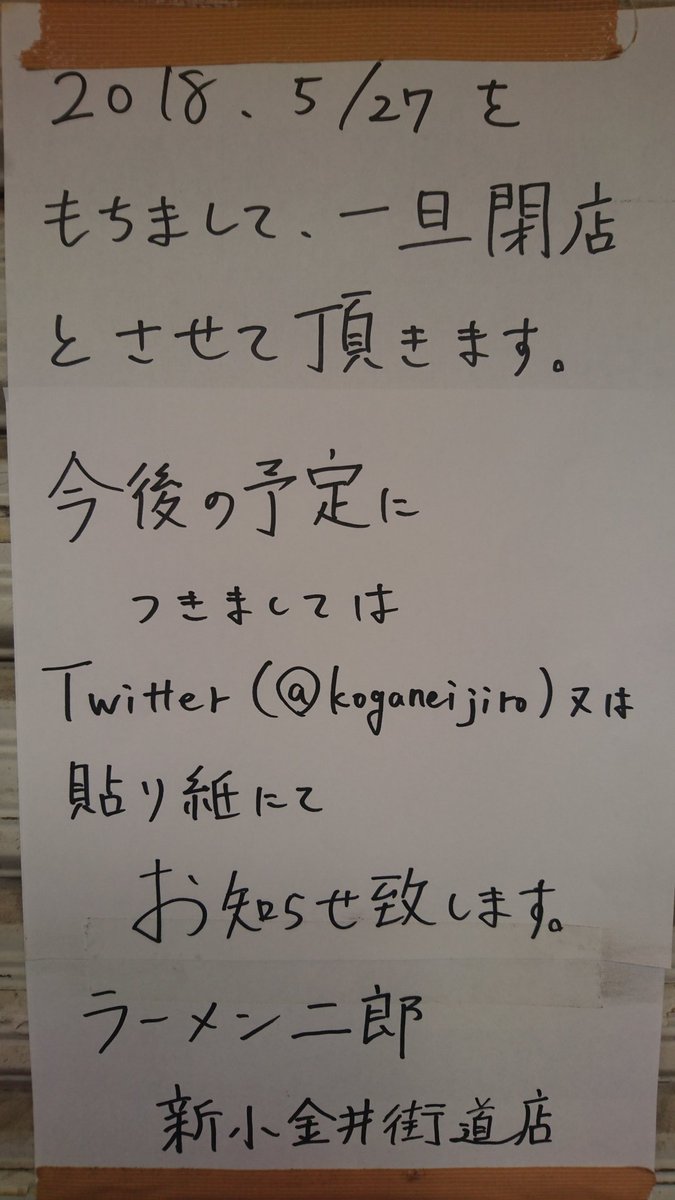 2018、5/27 を
もちまして、一旦閉店
とさせて頂きます。
今後の予定に
つきましては
Twitter (@koganeijiro) 又は
貼り紙にて
お知らせ致します。
ラーメン二郎
新小金井街道店